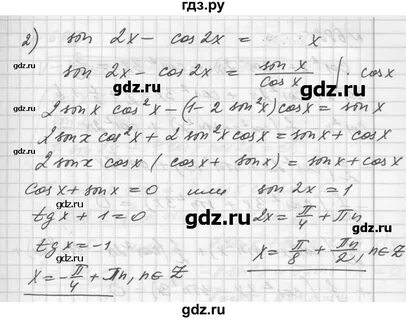 гдз.ру
2) sin 2x - cos 2x = x
sin 2x - cos 2x = sin x / cos x | · cos x
2 sin x cos²x - (1 - 2 sin²x) cos x = sin x
2 sin x cos²x + 2 sin²x cos x = sin x + cos x
2 sin x cos x (cos x + sin x) = sin x + cos x
cos x + sin x = 0 или sin 2x = 1
tg x + 1 = 0 2x = π/4 + πn
tg x = -1 x = π/8 + πn/2, n∈Z
x = -π/4 + πn, n∈Z
gdz.ru
gdz.ru
gdz.ru
gdz.ru
gdz.ru
gdz.ru
gdz.ru